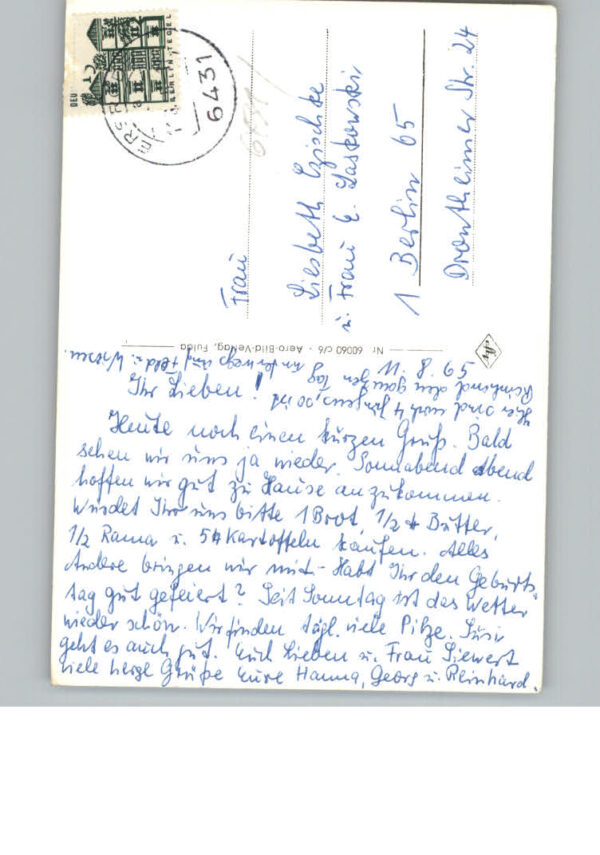 6431
BERLIN-TEGEL
Frau
Liesbeth Czischke
u. Frau E. Laskowski
1 Berlin 65
Drontheimer Str. 24
Nr. 60060 c/6 · Aero-Bild-Verlag, Fulda
11. 8. 65
Ihr Lieben!
Heute noch einen kurzen Gruß. Bald
sehen wir uns ja wieder. Sonnabend Abend
hoffen wir gut zu Hause anzukommen.
Würdet Ihr uns bitte 1 Brot, 1/2 Butter,
1/2 Rama u. 5 Kartoffeln kaufen. Alles
Andere bringen wir mit - Habt Ihr den Geburts-
tag gut gefeiert? Seit Sonntag ist das Wetter
wieder schön. Wir finden tägl. viele Pilze. Susi
geht es auch gut. Euch Lieben u. Frau Siewert
viele herzl Grüße Eure Hanna, Georg u. Reinhard.
Hier sind noch 4 Jungens, so ist
Reinhard den ganzen Tag unterwegs auf Feld u. Wiesen.